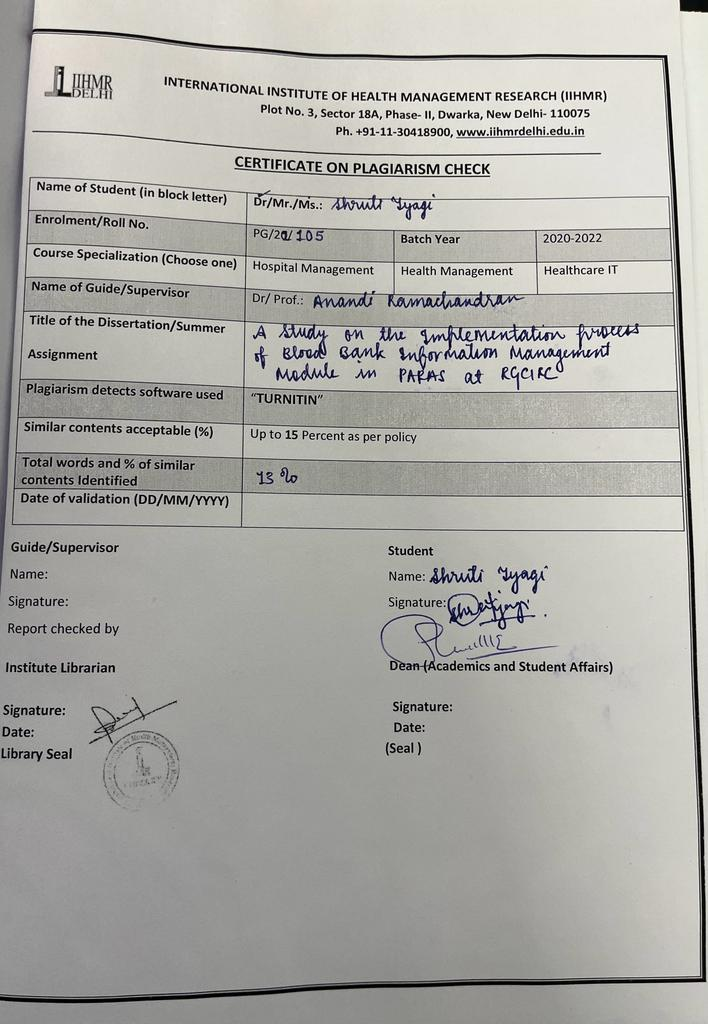 IIHMR
DELHI
INTERNATIONAL INSTITUTE OF HEALTH MANAGEMENT RESEARCH (IIHMR)
Plot No. 3, Sector 18A, Phase- II, Dwarka, New Delhi- 110075
Ph. +91-11-30418900, www.iihmrdelhi.edu.in
CERTIFICATE ON PLAGIARISM CHECK
Name of Student (in block letter) Dr/Mr./Ms.: Shruti Tyagi
Enrolment/Roll No. PG/20/105 Batch Year 2020-2022
Course Specialization (Choose one) Hospital Management Health Management Healthcare IT
Name of Guide/Supervisor Dr/ Prof.: Anandi Ramachandran
Title of the Dissertation/Summer A Study on the Implementation process
Assignment of Blood Bank Information Management
Module in PARAS at RGCIRC
Plagiarism detects software used "TURNITIN"
Similar contents acceptable (%) Up to 15 Percent as per policy
Total words and % of similar
contents Identified 13 %
Date of validation (DD/MM/YYYY)
Guide/Supervisor Student
Name: Name: Shruti Tyagi
Signature: Signature:
Report checked by
Institute Librarian Dean (Academics and Student Affairs)
Signature: Signature:
Date: Date:
Library Seal (Seal )